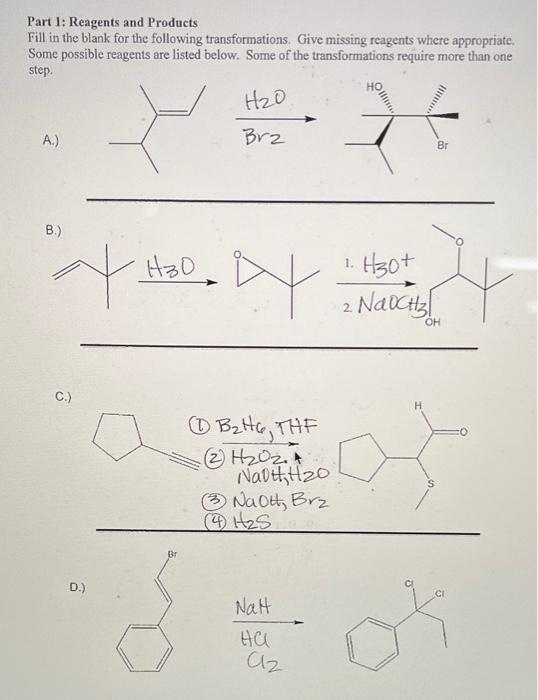 Part 1: Reagents and Products
Fill in the blank for the following transformations. Give missing reagents where appropriate.
Some possible reagents are listed below. Some of the transformations require more than one
step.
A.)
H2O
Br2
HO
Br
B.)
H3O
O
1. H3O+
2. NaOCH3
O
OH
C.)
① B2H6, THF
② H2O2.
NaOH, H2O
③ NaOH, Br2
④ H2S
H
O
S
D.)
Br
NaH
HCl
Cl2
Cl
Cl